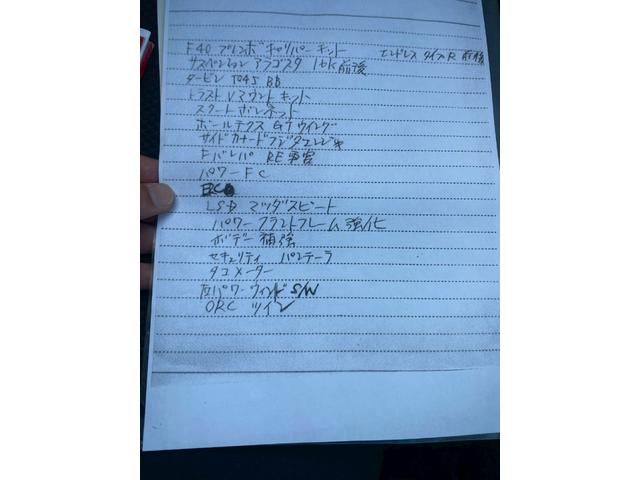 F40 ブレンボ キャリパー キット エンドレス タイプR 前後
サスペンション アラゴスタ 16k 前後
タービン TO4S BB
トラスト Vマウント キット
スクート ボンネット
ボールテクス GTウイング
サイドカナード
Fバンパ RE雨宮
パワーFC
LSD マツダスピード
パワープラントフレーム 強化
ボデー 補強
セキュリティ パンテーラ
タコメーター
パワーウィンド S/W
ORC ツイン